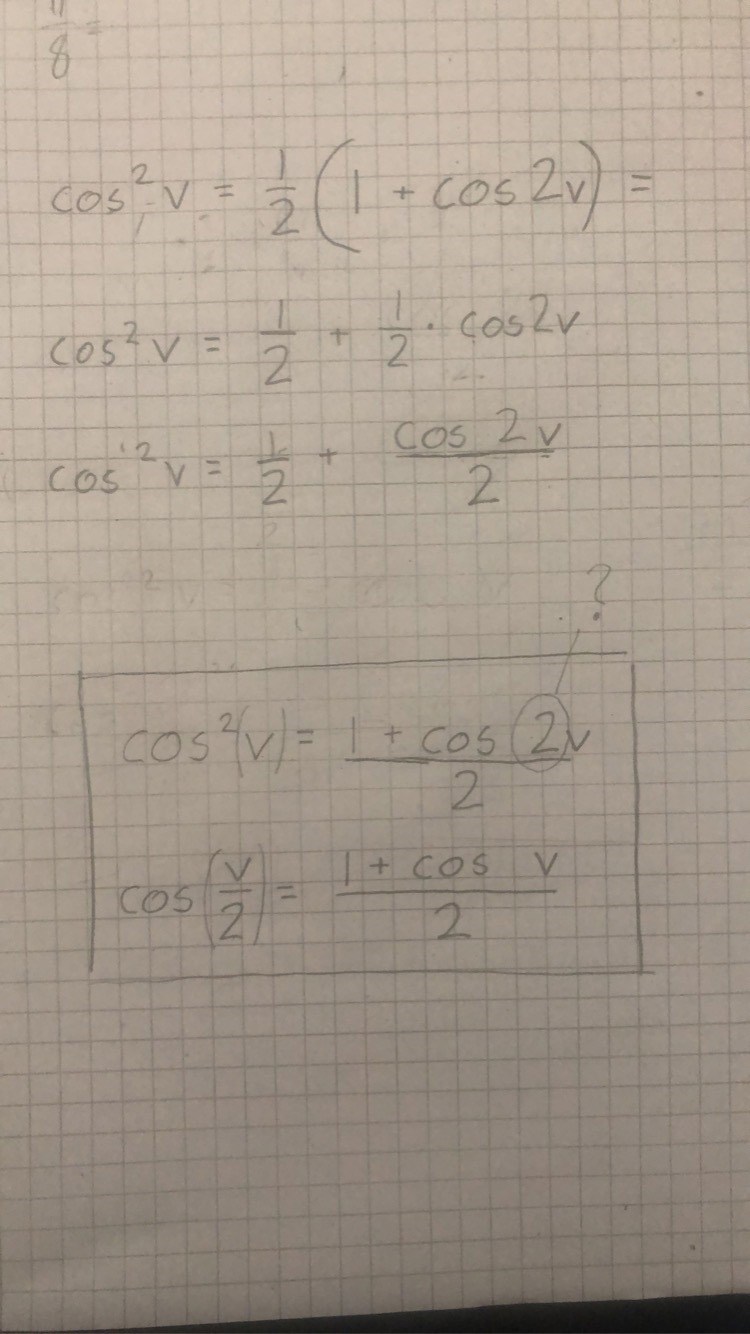 8 =
cos² v = 1/2 (1 + cos 2v) =
cos² v = 1/2 + 1/2 · cos2v
cos² v = 1/2 + cos 2v/2
?
cos²(v) = (1 + cos 2v)/2
cos(v/2) = (1 + cos v)/2